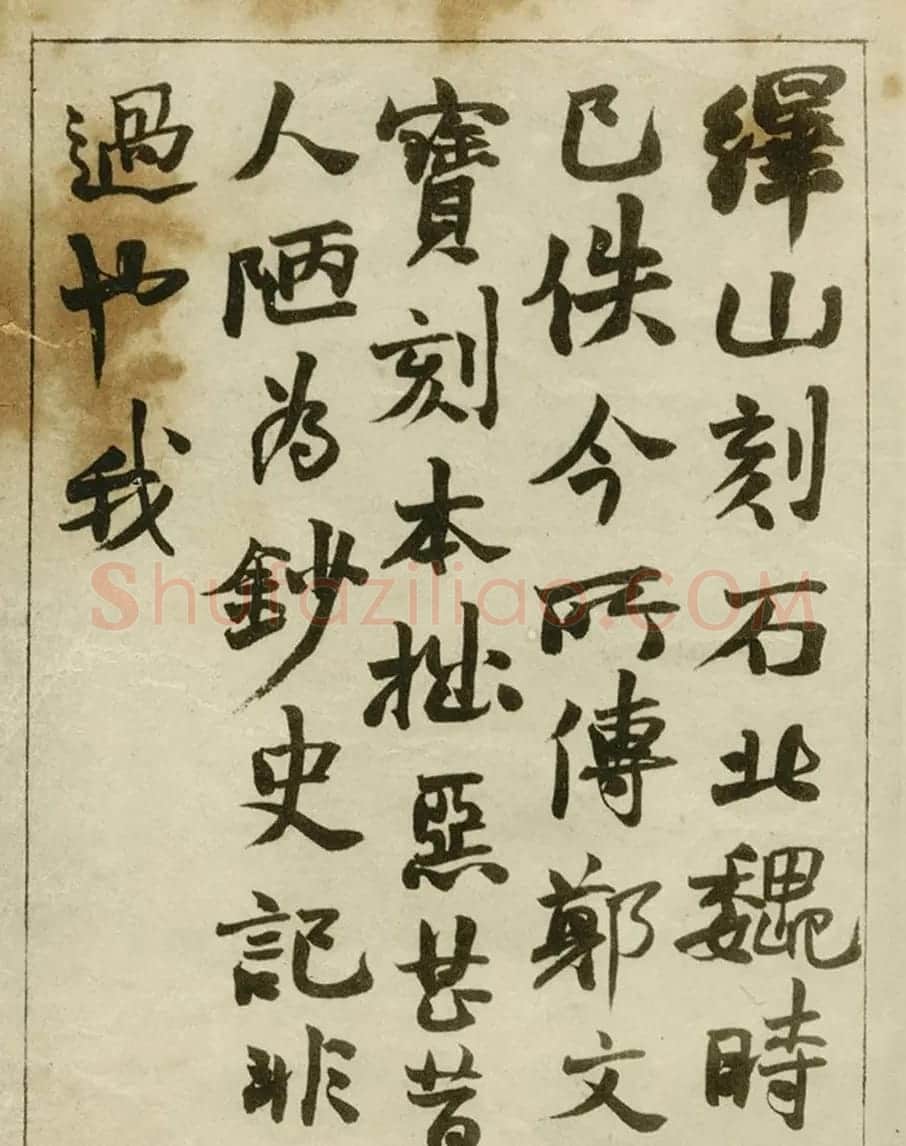 繹山刻石北魏時
已佚今所傳鄭文
寶刻本拙惡甚昔
人陋為鈔史記非
過也我
Shufaziliao.COM